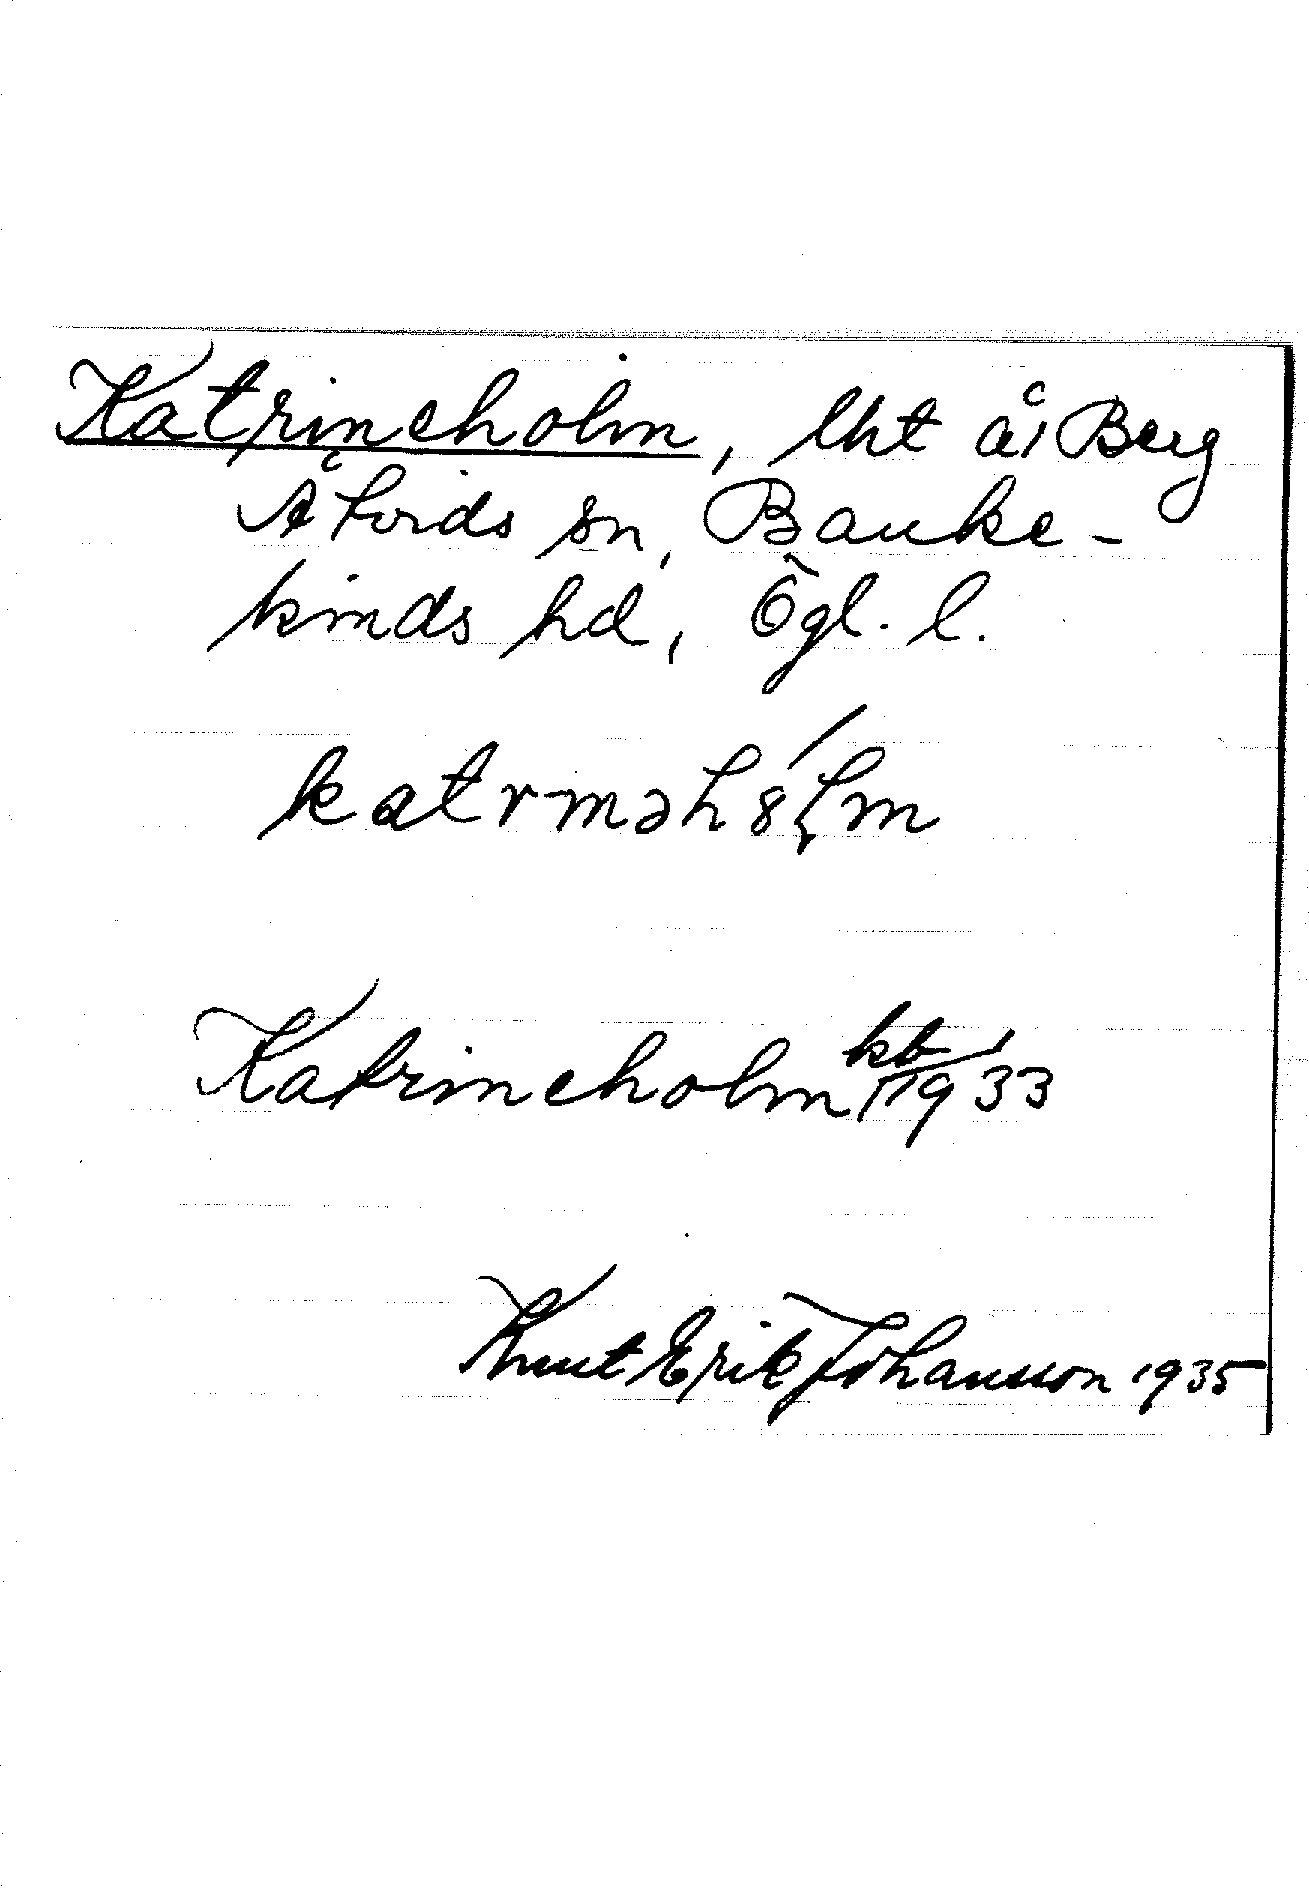 Katrineholm, lht å, Berg
Åtvids sn, Banke-
kinds hd, Ögl. l.
Katrineholm kb 1933
Knut Erik Johansson 1935